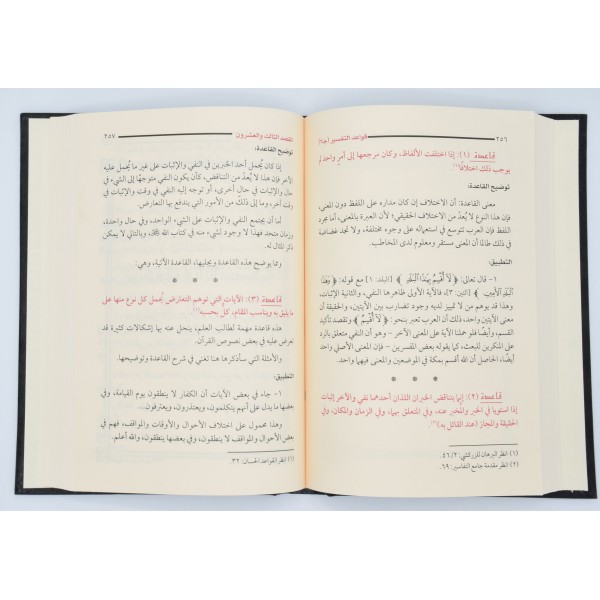 ٢٥٦ قواعد التفسير (جـ٢)
قاعدة (١): إذا اختلفت الألفاظ، وكان مرجعها إلى أمر واحد لم
يوجب ذلك اختلافًا(١)
توضيح القاعدة:
معنى القاعدة: أن الاختلاف إن كان مداره على اللفظ دون المعنى،
فإن هذا النوع لا يُعدّ من الاختلاف الحقيقي؛ لأن العبرة بالمعنى، أما مجرد
اللفظ فإن العرب تتوسع في استعماله على وجوه مختلفة، ولا تجد غضاضة
في ذلك طالما أن المعنى مستقر ومعلوم لدى المخاطب.
التطبيق:
١- قال تعالى: ﴿لَا أُقْسِمُ بِهَذَا الْبَلَدِ﴾ [البلد: ١] مع قوله: ﴿وَهَذَا
الْبَلَدِ الْأَمِينِ﴾ [التين: ٣]، فالآية الأولى ظاهرها النفي، والثانية الإثبات،
والواقع أنه ليس هناك ما يدعو لوجود تضارب بين الآيتين لاتحاد
معنى الآيتين واحد، ذلك لأن العرب تعبر بنحو: ﴿لَا أُقْسِمُ﴾ وتقصد تأكيد
القسم، وأيضًا فلو حملنا الآية على المعنى الآخر - وهو أن النفي متعلق بالرد
على المنكرين للبعث، كما يقوله بعض المفسرين - فإن المعنى الأصلي واحد
أيضًا، إذ الحاصل أن الله أقسم بمكة في الموضعين والمعنى فيهما واحد.
قاعدة (٢): إنما يتناقض الخبران اللذان أحدهما نفي والآخر إثبات
إذا استويا في الخبر والمخبر عنه، وفي المتعلق بهما، وفي الزمان والمكان، وفي
الحقيقة والمجاز (عند القائل به)(٢)
(١) انظر البرهان للزركشي: ٤٦/٢.
(٢) انظر مقدمة جامع التفاسير: ٦٩.
المقصد الثالث والعشرون ٢٥٧
توضيح القاعدة:
إذا كان يُحمل أحد الخبرين في النفي والإثبات على غير ما يُحمل عليه
الآخر، فإن هذا لا يُعدّ من التناقض، كأن يكون النفي متوجهًا إلى الشيء في
حال، والإثبات له في حال أخرى، أو توجيه النفي في وقت والإثبات في
وقت آخر، وما إلى ذلك من الأمور التي يندفع بها التعارض.
أما أن يجتمع النفي والإثبات على الشيء الواحد، وفي حال واحدة،
وزمان متحد فهذا لا وجود لشيء منه في كتاب الله ﷻ، وبالتالي لا يمكن
ذكر المثال له.
ومما يوضح هذه القاعدة ويجليها، القاعدة الآتية، وهي:
قاعدة (٣): الآيات التي توهم التعارض يُحمل كل نوع منها على
ما يليق به ويناسب المقام، كل بحسبه(١)
هذه قاعدة مهمة لطالب العلم، ينحل عنه بها إشكالات كثيرة قد
تعرض له في بعض نصوص القرآن.
والأمثلة التي سأذكرها هنا تغني في شرح القاعدة وتوضيحها.
التطبيق:
١- جاء في بعض الآيات أن الكفار لا ينطقون يوم القيامة، وفي
بعضها ما يدل على أنهم يتكلمون، ويعتذرون، ويعترفون.
وهذا محمول على اختلاف الأحوال والأوقات والمواقف، فهم في
بعض الأحوال والمواقف لا ينطقون، وفي بعضها ينطقون، والله أعلم.
(١) انظر القواعد الحسان: ٣٢.